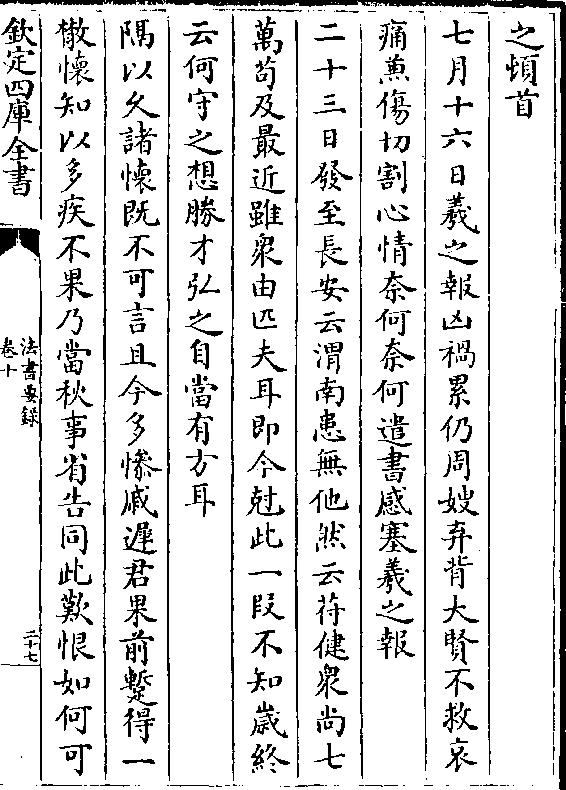 之頓首
七月十六日羲之報凶禍累仍周嫂弃背大賢不救哀
痛蒸傷切割心情奈何奈何遣書感塞羲之報
二十三日發至長安云渭南患無他然云苻健衆尚七
萬苟及最近雖衆由匹夫耳即今尅此一段不知歲終
云何守之想勝才弘之自當有方耳
隅以欠諸懷既不可言且今多慘戚遲君果前蹔得一
散懷知以多疾不果乃當秋事省告同此歎恨如何可
欽定四庫全書
法書要録
卷十
二十七